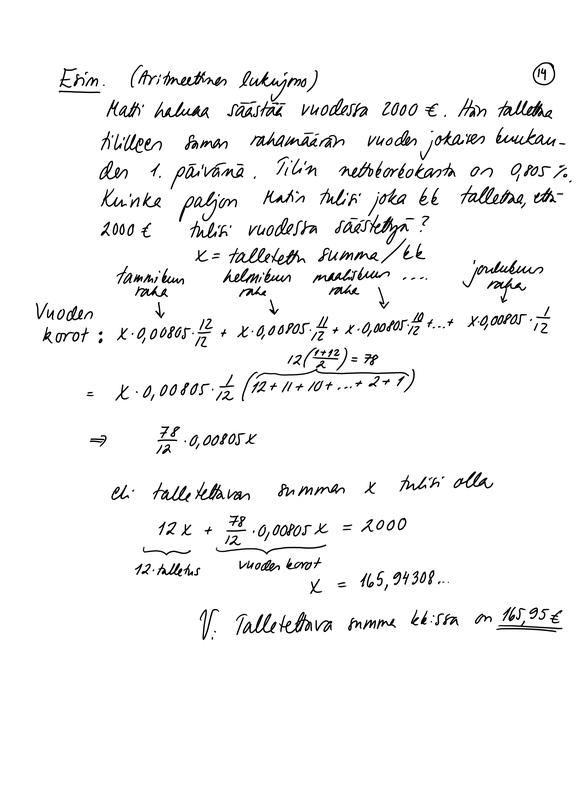 Esim. (Aritmeettinen lukujono) 14
Matti haluaa säästää vuodessa 2000 €. Hän tallettaa
tililleen saman rahamäärän vuoden jokaisen kuukau-
den 1. päivänä. Tilin nettokorkokanta on 0,805 %.
Kuinka paljon Matin tulisi joka kk tallettaa, että
2000 € tulisi vuodessa säästettyä?
x = talletettu summa/kk
tammikuun raha helmikuun raha maaliskuun raha .... joulukuun raha
Vuoden korot: x·0,00805·12/12 + x·0,00805·11/12 + x·0,00805·10/12 +...+ x·0,00805·1/12
12(1+12/2) = 78
= x·0,00805·1/12 (12+11+10+...+2+1)
⇒ 78/12 ·0,00805x
eli talletettavan summan x tulisi olla
12x + 78/12 ·0,00805x = 2000
12·talletus vuoden korot
x = 165,94308...
V: Talletettava summa kk:ssa on 165,95 €